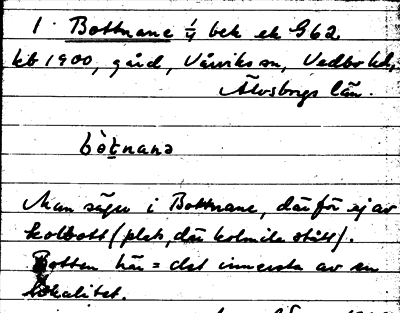 1. Bottnane 1/4 bek ek G62
kb 1900, gård, Vårviks sn, Vedbo hd,
Älvsborgs län.
bòtnanə
Man säger i Bottnane, därför ej av
kolbott (plats, där kolmila stått).
Botten här = det innersta av en
lokalitet.